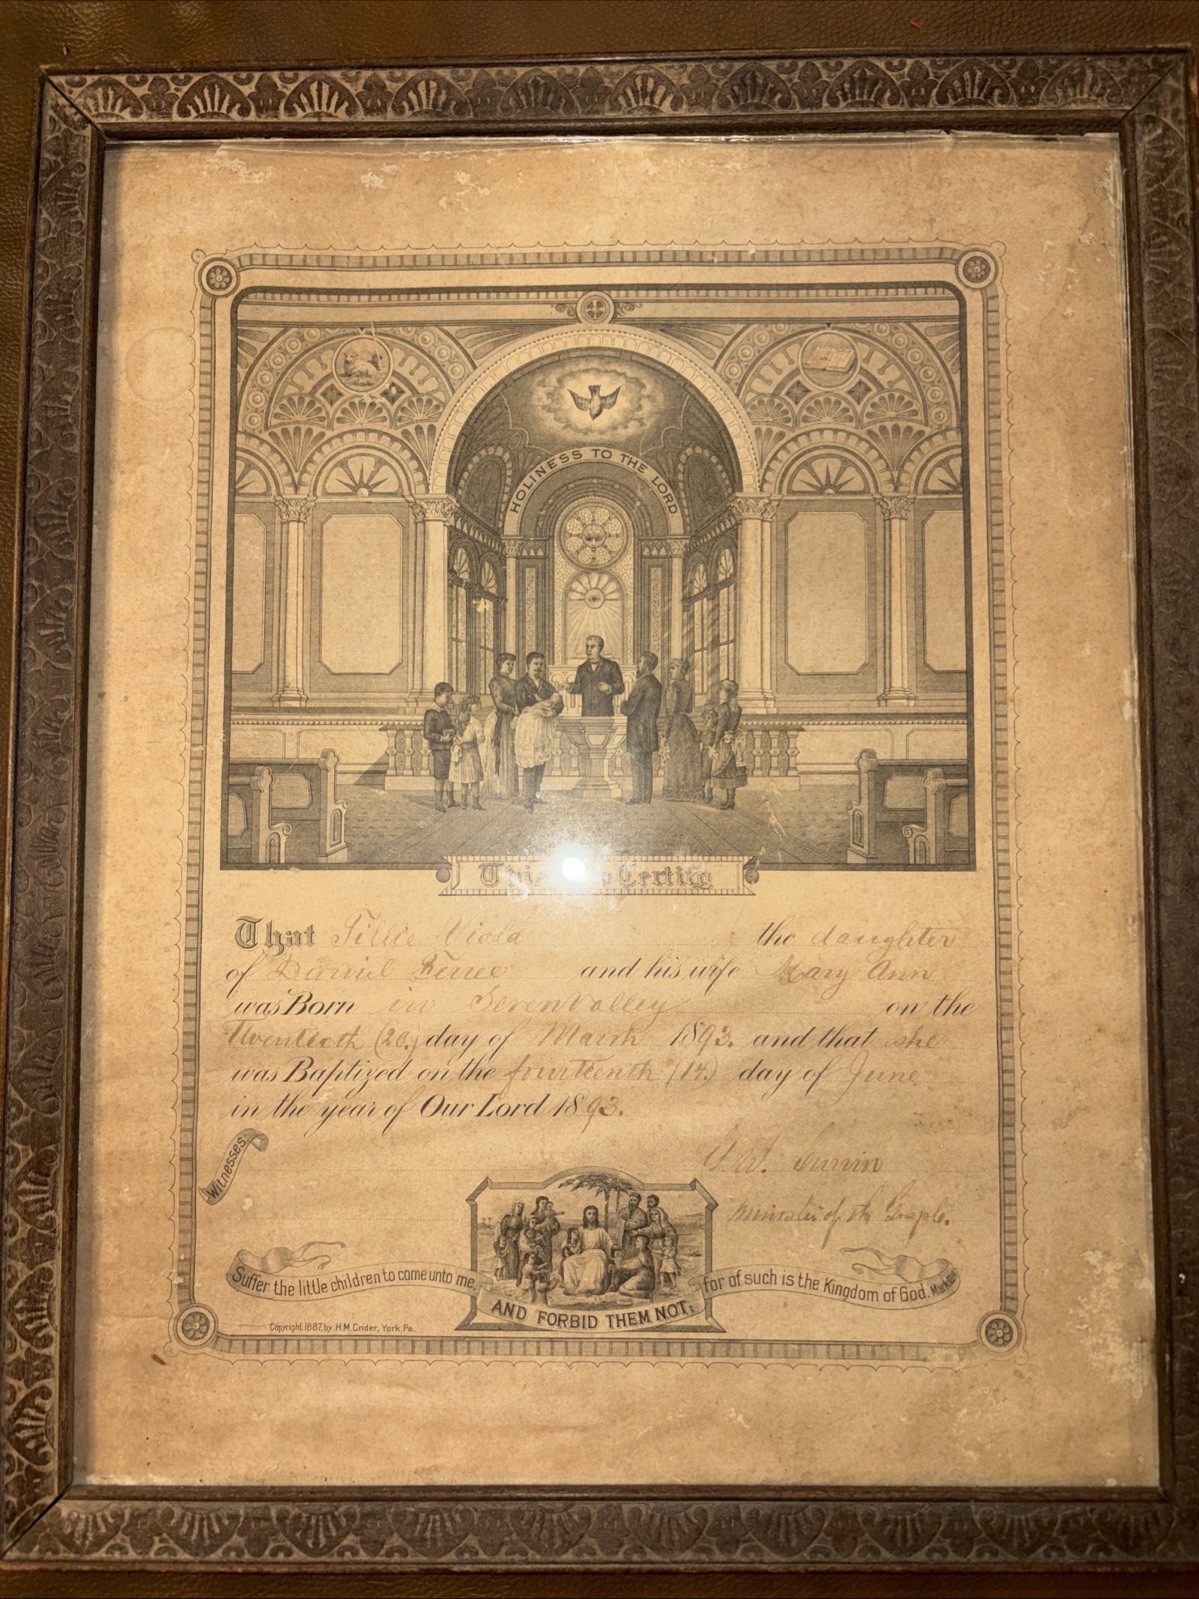 HOLINESS TO THE LORD
This Certify
That Tillie Viola the daughter
of Daniel and his wife Mary Ann
was Born in on the
Twentieth (20.) day of March 1893. and that she
was Baptized on the fourteenth (14.) day of June
in the year of Our Lord 1893.
Witnesses
G. W.
Minister of the
Suffer the little children to come unto me,
AND FORBID THEM NOT;
for of such is the Kingdom of God.
Copyright 1887, by H. M. Crider, York Pa.